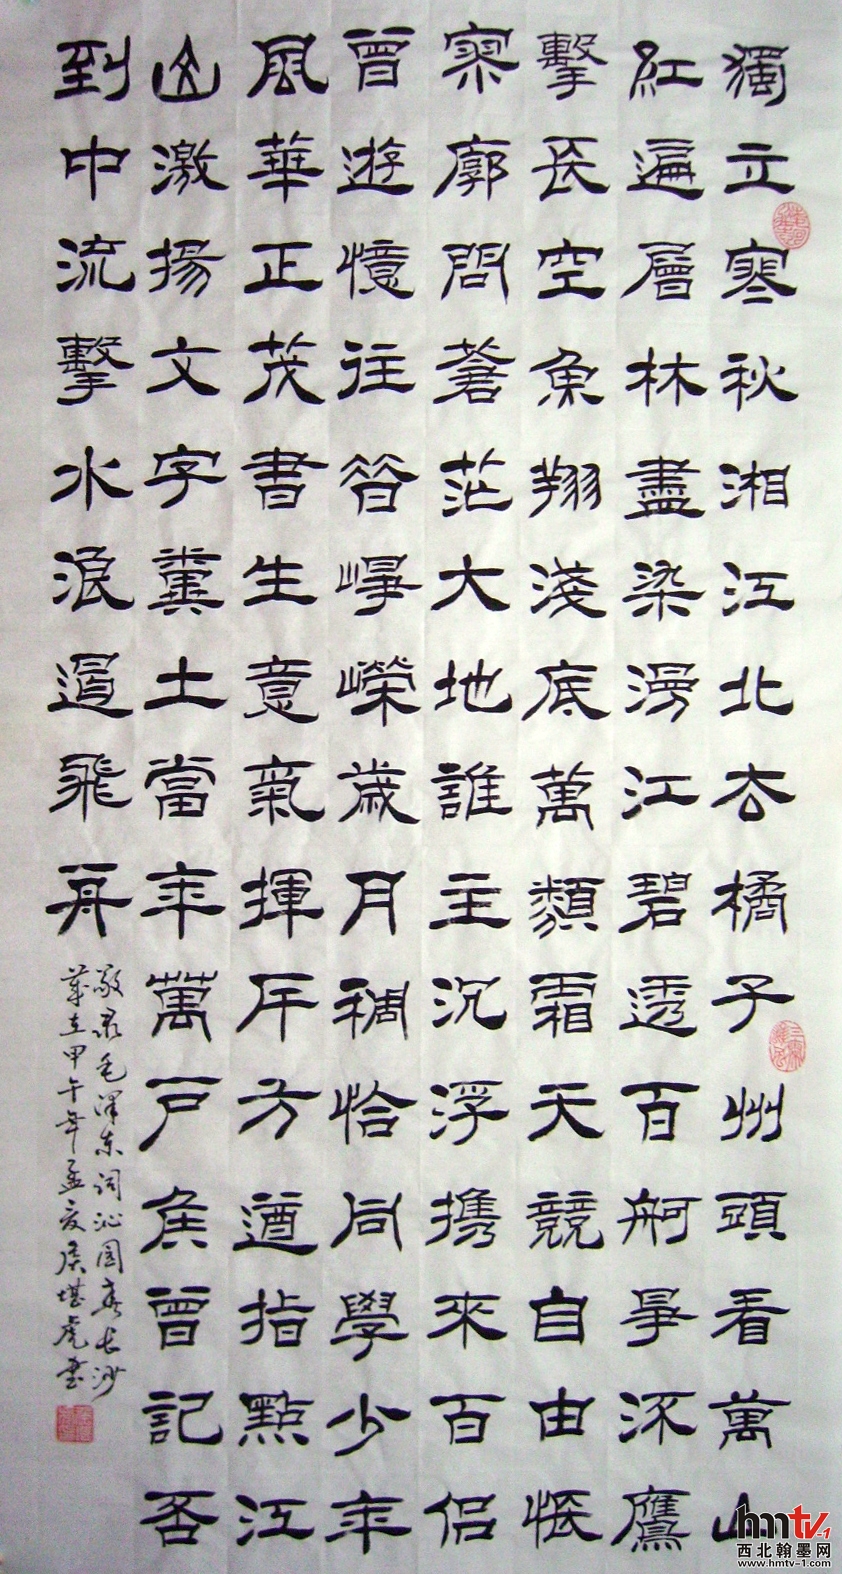 獨立寒秋湘江北去橘子州頭看萬山
紅遍層林盡染漫江碧透百舸爭流鷹
擊長空魚翔淺底萬類霜天競自由悵
寥廓問蒼茫大地誰主沉浮携來百侣
曾遊憶往昔崢嶸歲月稠恰同學少年
風華正茂書生意氣揮斥方遒指點江
山激揚文字糞土當年萬户侯曾記否
到中流擊水浪遏飛舟
敬录毛泽东词沁园春长沙
岁在甲午年孟夏侯堪虎书
hmtv-1
西北翰墨网
www.hmtv-1.com